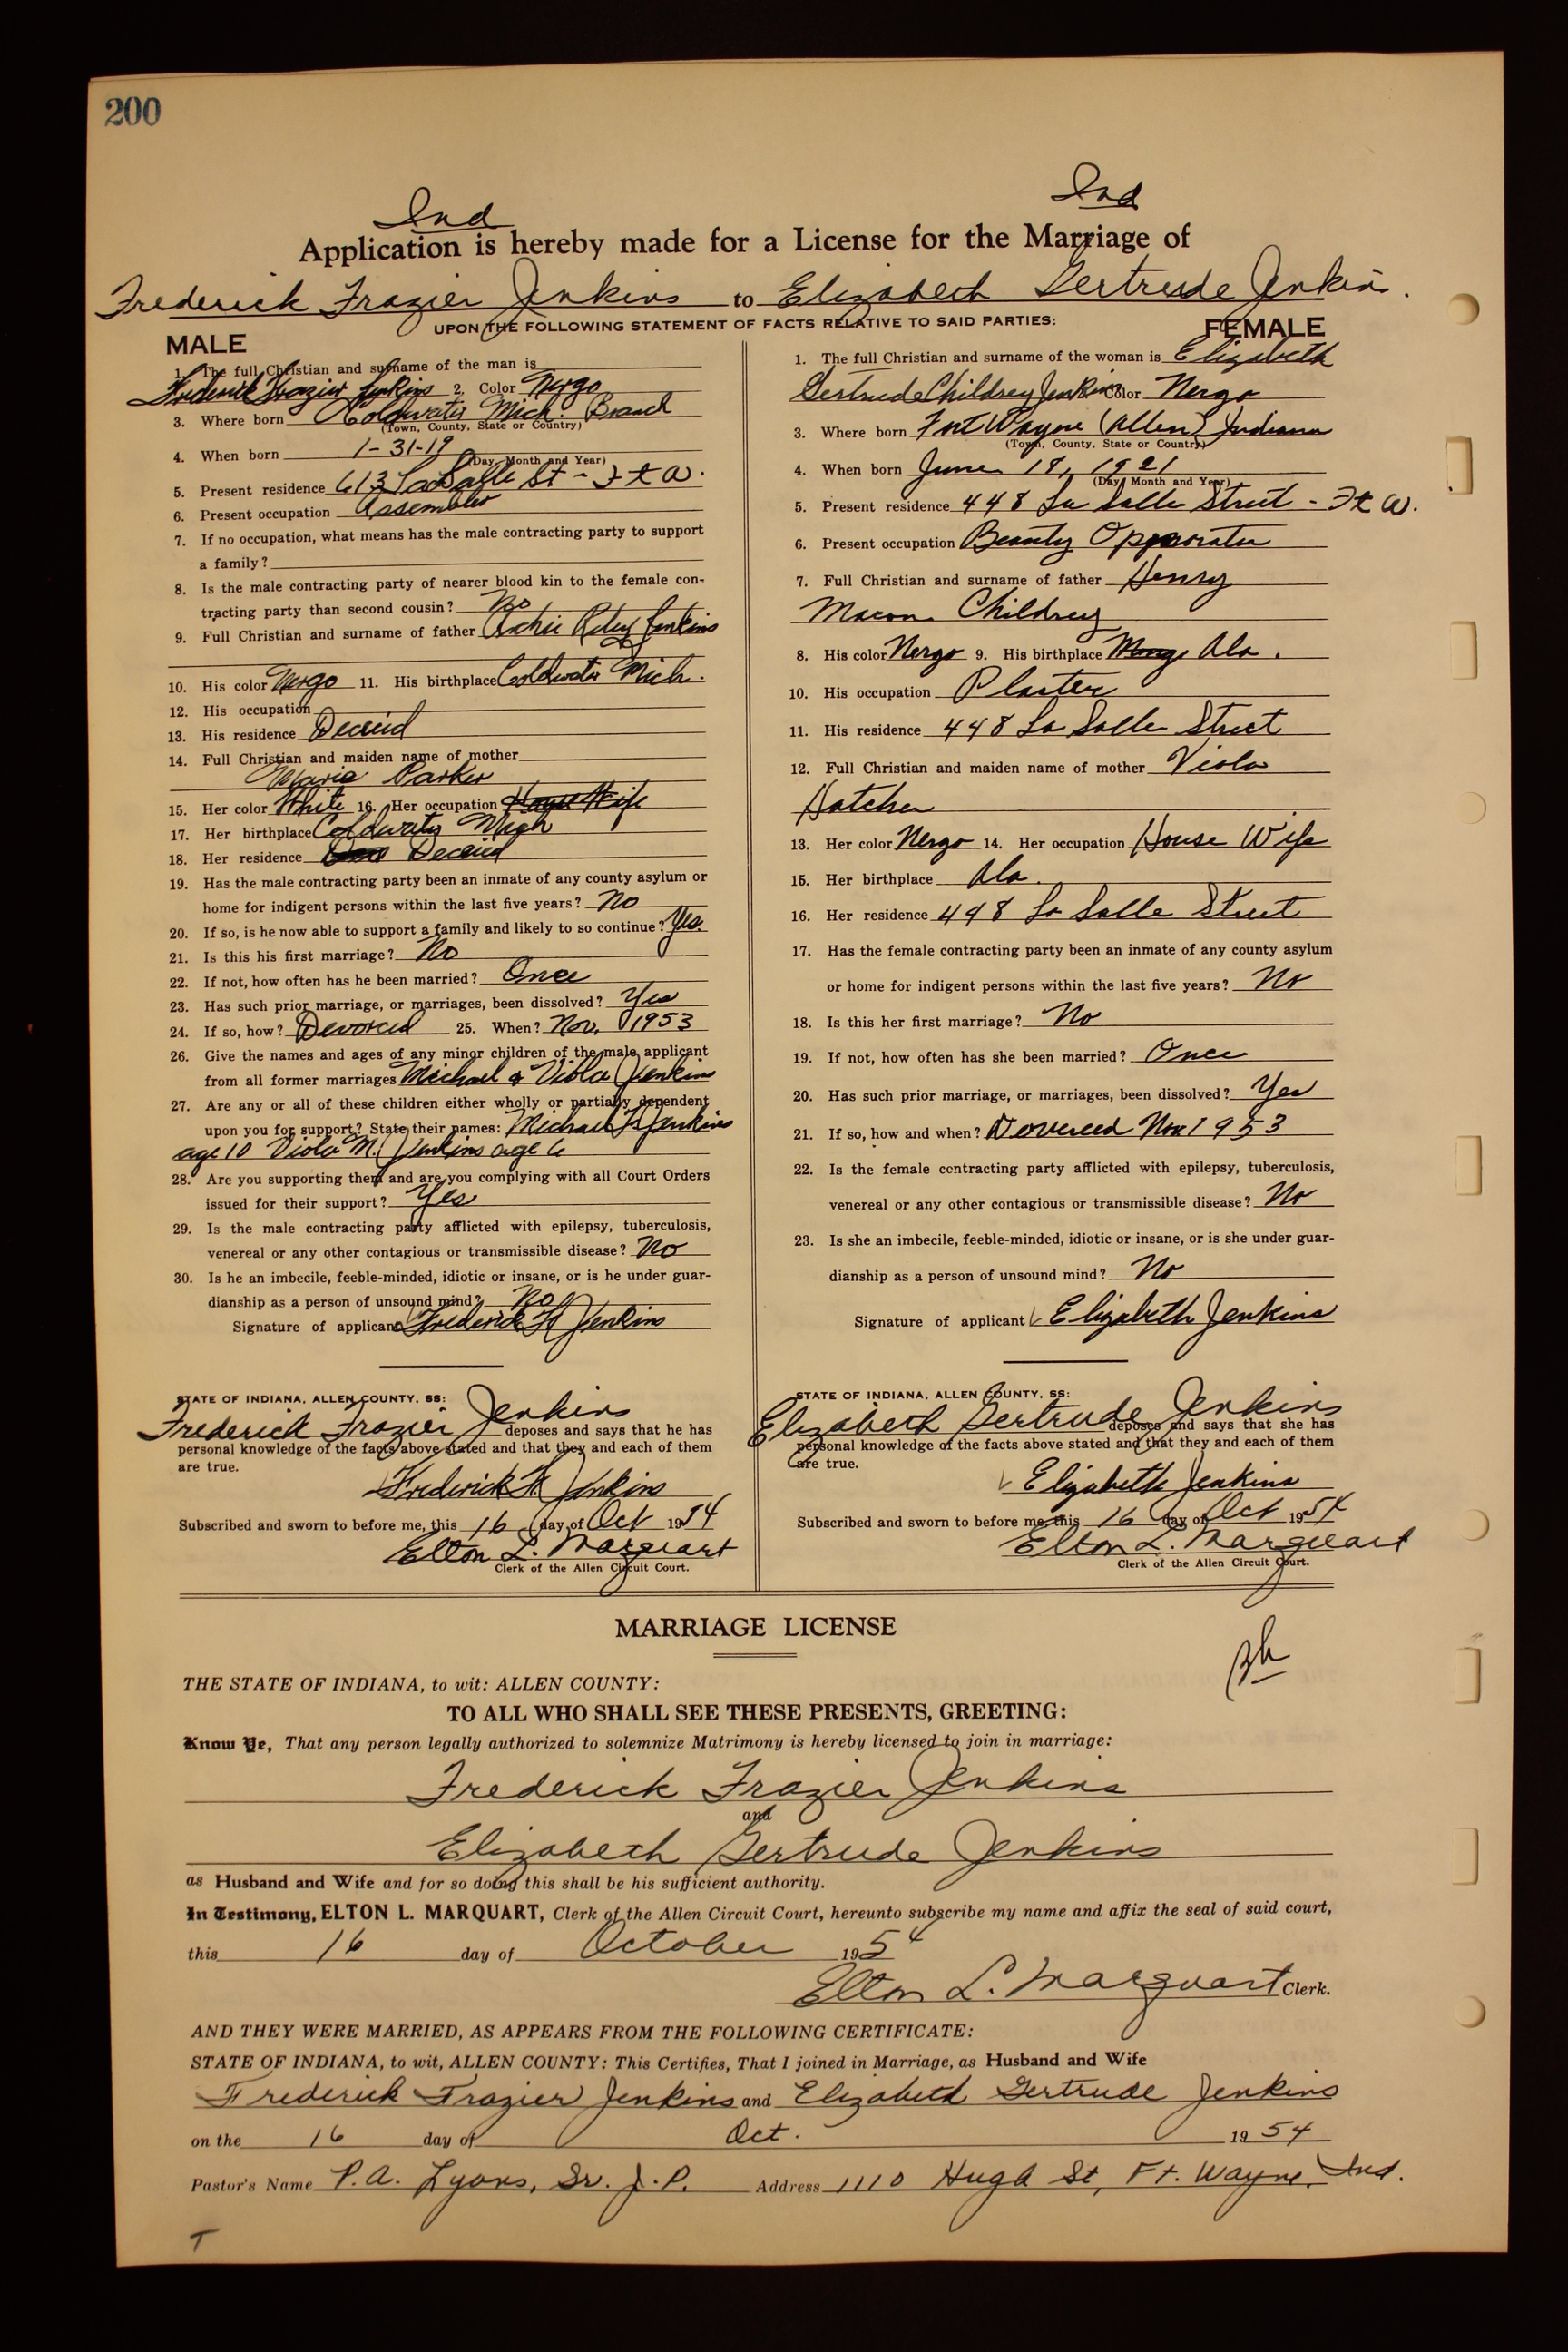 200
Ind Ind
Application is hereby made for a License for the Marriage of
Frederick Frazier Jenkins to Elizabeth Gertrude Jenkins.
UPON THE FOLLOWING STATEMENT OF FACTS RELATIVE TO SAID PARTIES:
MALE
1. The full Christian and surname of the man is
Frederick Frazier Jenkins 2. Color Nergo
3. Where born Coldwater Mich. Branch
(Town, County, State or Country)
4. When born 1-31-19
(Day, Month and Year)
5. Present residence 613 LaSalle St - Ft W.
6. Present occupation Assembler
7. If no occupation, what means has the male contracting party to support
a family?
8. Is the male contracting party of nearer blood kin to the female con-
tracting party than second cousin? No
9. Full Christian and surname of father Archie Riley Jenkins
10. His color Nergo 11. His birthplace Coldwater Mich.
12. His occupation
13. His residence Decied
14. Full Christian and maiden name of mother
Marie Parker
15. Her color White 16. Her occupation House Wife
17. Her birthplace Coldwater Mich
18. Her residence Decied
19. Has the male contracting party been an inmate of any county asylum or
home for indigent persons within the last five years? No
20. If so, is he now able to support a family and likely to so continue? Yes.
21. Is this his first marriage? No
22. If not, how often has he been married? Once
23. Has such prior marriage, or marriages, been dissolved? Yes
24. If so, how? Devorced 25. When? Nov. 1953
26. Give the names and ages of any minor children of the male applicant
from all former marriages Michael & Viola Jenkins
27. Are any or all of these children either wholly or partially dependent
upon you for support? State their names: Michael F. Jenkins
age 10 Viola M. Jenkins age 6
28. Are you supporting them and are you complying with all Court Orders
issued for their support? Yes
29. Is the male contracting party afflicted with epilepsy, tuberculosis,
venereal or any other contagious or transmissible disease? No
30. Is he an imbecile, feeble-minded, idiotic or insane, or is he under guar-
dianship as a person of unsound mind? No
Signature of applicant Frederick F Jenkins
STATE OF INDIANA, ALLEN COUNTY, SS:
Frederick Frazier Jenkins deposes and says that he has
personal knowledge of the facts above stated and that they and each of them
are true.
Frederick F. Jenkins
Subscribed and sworn to before me, this 16 day of Oct 1954
Elton L. Marquart
Clerk of the Allen Circuit Court.
FEMALE
1. The full Christian and surname of the woman is Elizabeth
Gertrude Childrey Jenkins Color Nergo
3. Where born Fort Wayne (Allen) Indiana
(Town, County, State or Country)
4. When born June 18, 1921
(Day, Month and Year)
5. Present residence 448 La Salle Street - Ft W.
6. Present occupation Beauty Opporator
7. Full Christian and surname of father Henry
Macon Childrey
8. His color Nergo 9. His birthplace Ala.
10. His occupation Plaster
11. His residence 448 La Salle Street
12. Full Christian and maiden name of mother Viola
Hatcher
13. Her color Nergo 14. Her occupation House Wife
15. Her birthplace Ala.
16. Her residence 448 La Salle Street
17. Has the female contracting party been an inmate of any county asylum
or home for indigent persons within the last five years? No
18. Is this her first marriage? No
19. If not, how often has she been married? Once
20. Has such prior marriage, or marriages, been dissolved? Yes
21. If so, how and when? Dovorced Nov 1953
22. Is the female contracting party afflicted with epilepsy, tuberculosis,
venereal or any other contagious or transmissible disease? No
23. Is she an imbecile, feeble-minded, idiotic or insane, or is she under guar-
dianship as a person of unsound mind? No
Signature of applicant Elizabeth Jenkins
STATE OF INDIANA, ALLEN COUNTY, SS:
Elizabeth Gertrude Jenkins deposes and says that she has
personal knowledge of the facts above stated and that they and each of them
are true.
Elizabeth Jenkins
Subscribed and sworn to before me, this 16 day of Oct 1954
Elton L. Marquart
Clerk of the Allen Circuit Court.
MARRIAGE LICENSE
THE STATE OF INDIANA, to wit: ALLEN COUNTY:
TO ALL WHO SHALL SEE THESE PRESENTS, GREETING:
Know Ye, That any person legally authorized to solemnize Matrimony is hereby licensed to join in marriage:
Frederick Frazier Jenkins
and
Elizabeth Gertrude Jenkins
as Husband and Wife and for so doing this shall be his sufficient authority.
In Testimony, ELTON L. MARQUART, Clerk of the Allen Circuit Court, hereunto subscribe my name and affix the seal of said court,
this 16 day of October 1954
Elton L. Marquart Clerk.
AND THEY WERE MARRIED, AS APPEARS FROM THE FOLLOWING CERTIFICATE:
STATE OF INDIANA, to wit, ALLEN COUNTY: This Certifies, That I joined in Marriage, as Husband and Wife
Frederick Frazier Jenkins and Elizabeth Gertrude Jenkins
on the 16 day of Oct. 1954
Pastor's Name P.A. Lyons, Sr. J.P. Address 1110 Hugh St, Ft. Wayne, Ind.
T